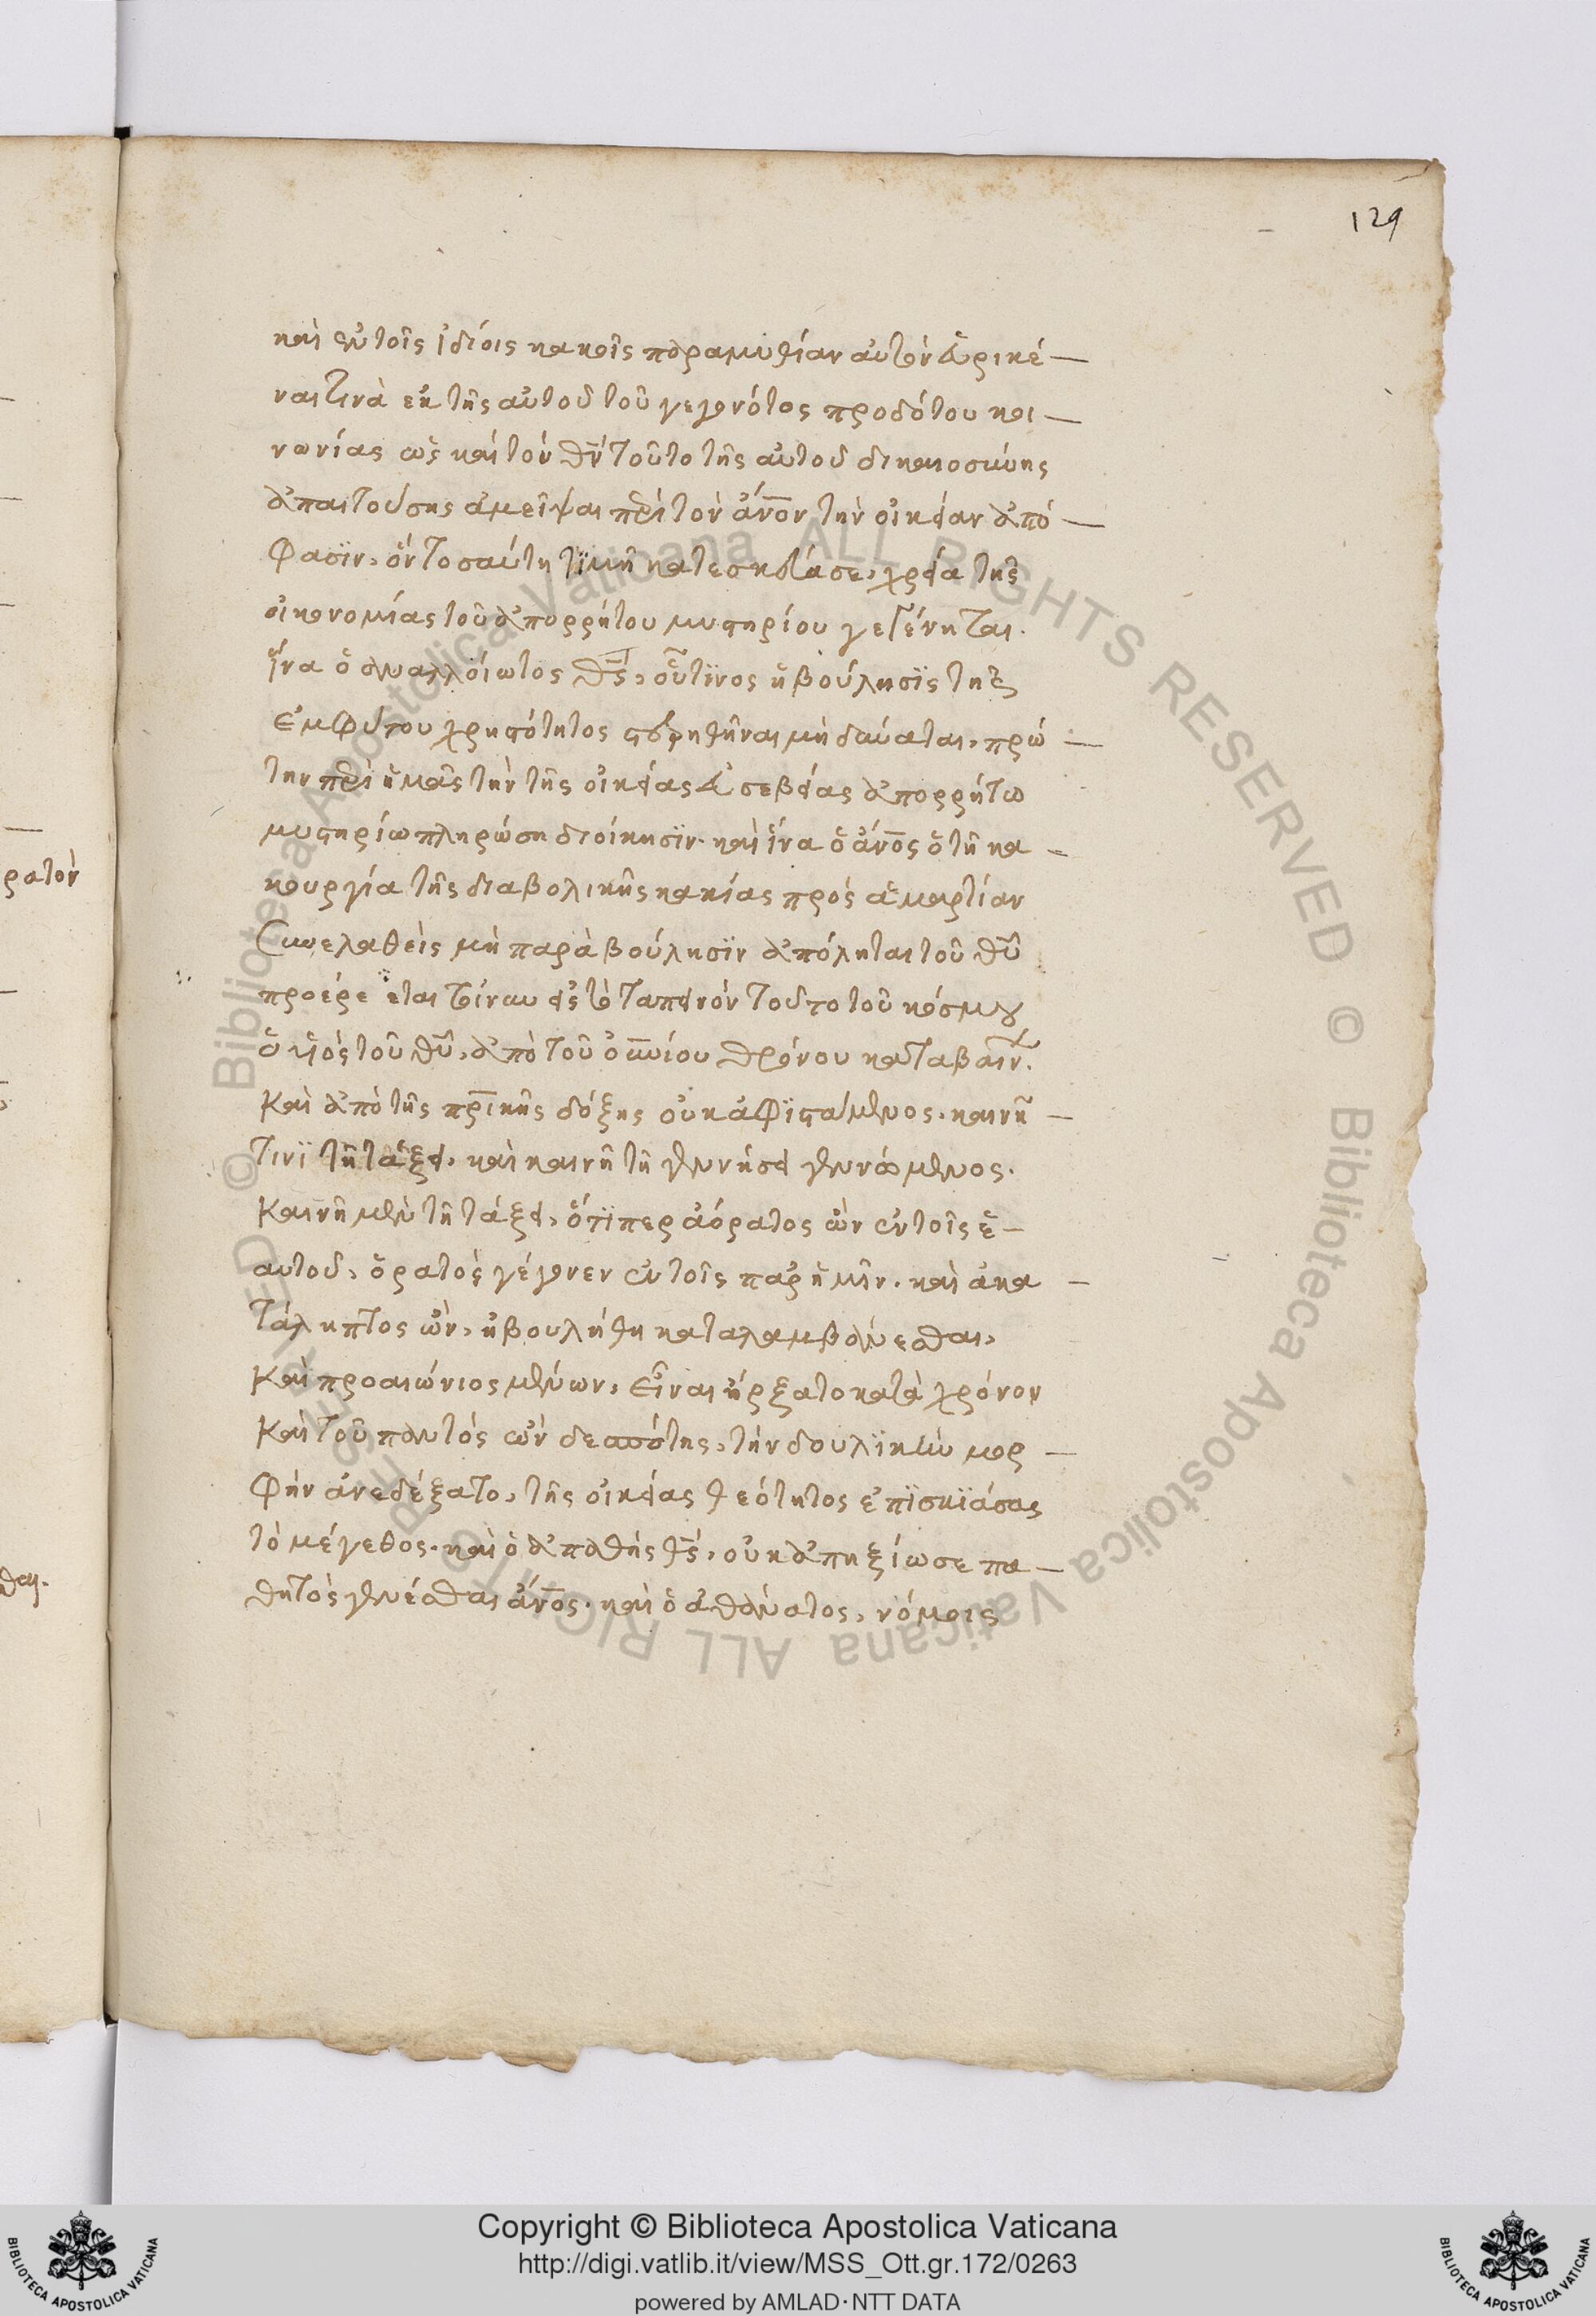 129
καὶ ἐν τοῖς ἰδίοις κακοῖς παραμυθίαν αὐτὸν εὑρηκέ
ναι τινὰ ἐκ τῆς αὐτοῦ τοῦ γεγονότος προδότου κοι
νωνίας ὡς καὶ τὸν θν̄ τοῦτο τῆς αὐτοῦ δικαιοσύνης
ἀπαιτούσης ἀμεῖψαι περὶ τὸν ἄνον̄ τὴν οἰκείαν ἀπό
φασϊν, ὃν τοσαύτη τϊμῆ κατεσκεύασε, χρεία τῆς
οἰκονομίας τοῦ ἀπορρήτου μυστηρίου γεγένηται.
ἵνα ὁ ἀναλλοίωτος θς̄, οὗτϊνος ἡ βούλησϊς τῆς
ἐμφύτου χρηστότητος στερηθῆναι μὴ δύναται, πρώ
την περὶ ἡμᾶς τὴν τῆς οἰκείας εὐσεβείας ἀπορρήτω
μυστηρίω πληρώση διοίκησϊν. καὶ ἵνα ὁ ἄνος̄ ὁ τῆ κα
κουργία τῆς διαβολικῆς κακίας πρὸς ἁμαρτίαν
συνελαθεὶς μὴ παρὰ βούλησϊν ἀπόληται τοῦ θῡ
προέρχεται τοίνυν εἰς τὸ ταπεινὸν τοῦτο τοῦ κόσμου
ὁ υἱὸς τοῦ θῡ, ἀπὸ τοῦ οὐνίου θρόνου καταβαίνων.
καὶ ἀπὸ τῆς πρικῆς δόξης οὐκ ἀφϊστάμενος. καινῆ
τινϊ τῆ τάξει, καὶ καινῆ τῆ γεννήσει γεννώμενος.
καινῆ μὲν τῆ τάξει, ὅτϊπερ ἀόρατος ὢν ἐν τοῖς ἑ
αυτοῦ, ὁρατὸς γέγονεν ἐν τοῖς παρ' ἡμῖν. καὶ ἀκα
τάληπτος ὢν, ἠβουλήθη καταλαμβάνεσθαι,
καὶ προαιώνιος μένων, εἶναι ἤρξατο κατὰ χρόνον
καὶ τοῦ παντὸς ὢν δεσπότης, τὴν δουλϊκὴν μορ
φὴν ἀνεδέξατο, τῆς οἰκείας θεότητος ἐπϊσκϊάσας
τὸ μέγεθος. καὶ ὁ ἀπαθὴς θς̄, οὐκ ἀπηξίωσε πα
θητὸς γενέσθαι ἄνος̄. καὶ ὁ ἀθάνατος, νόμοις
ρατὸν
θαι.
Copyright © Biblioteca Apostolica Vaticana
http://digi.vatlib.it/view/MSS_Ott.gr.172/0263
powered by AMLAD·NTT DATA
BIBLIOTECA APOSTOLICA VATICANA
BIBLIOTECA APOSTOLICA VATICANA